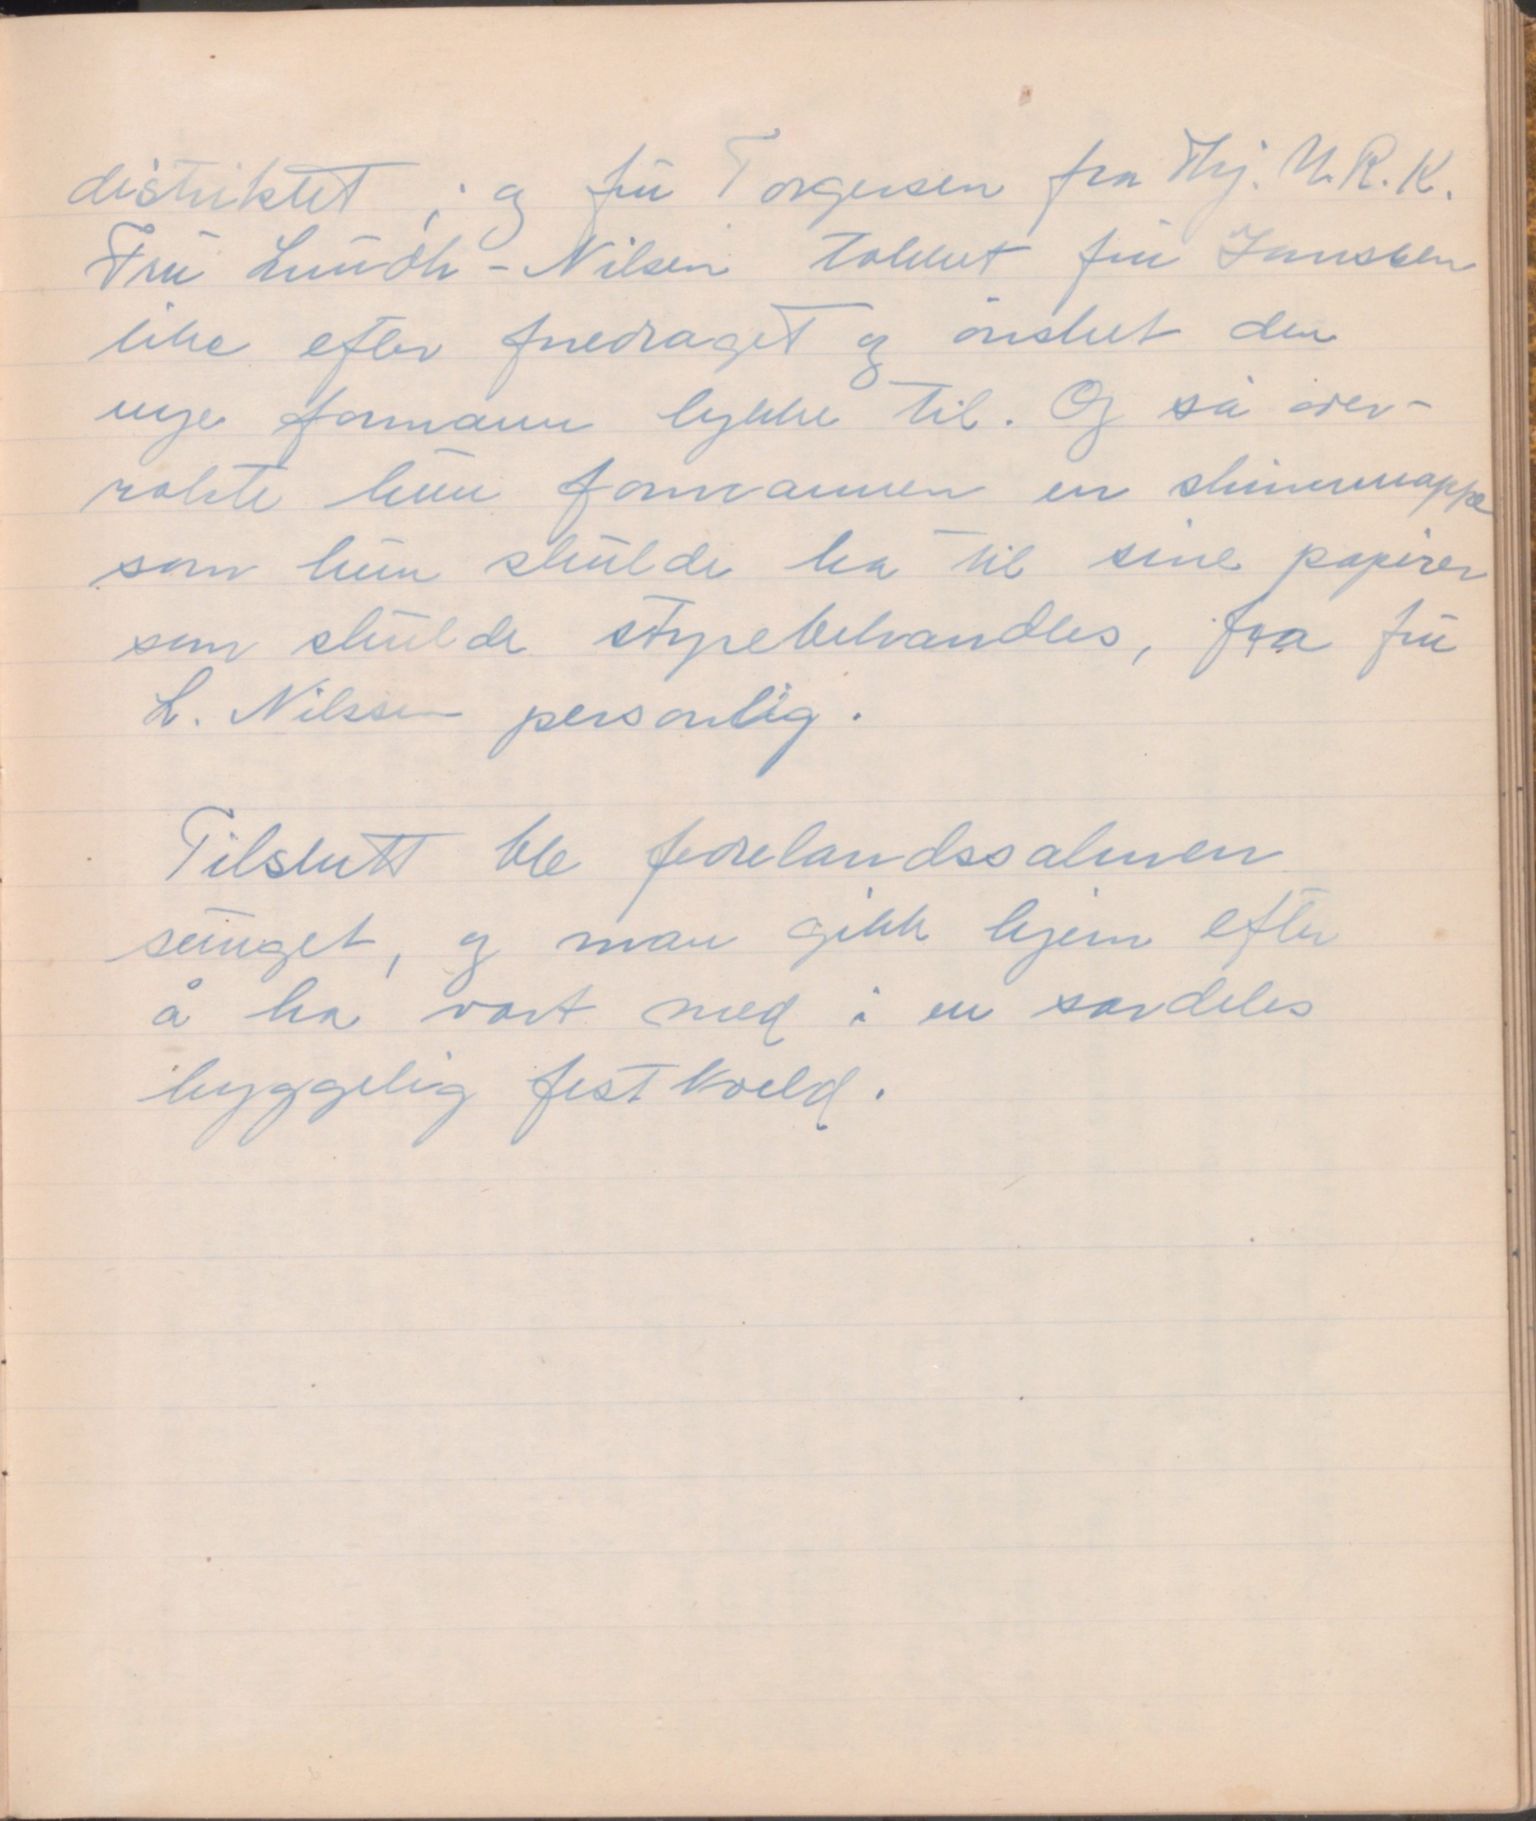 distriktet, og fru Torgersen fra Hj. N.R.K.
Fru Lundh-Nilsen takket fru Janssen
like efter foredraget og ønsket den
nye formann lykke til. Og så over-
rakte hun formannen en skinnmappe
som hun skulde ha til sine papirer
som skulde styrebehandles, fra fru
L. Nilssen personlig.
Tilslutt ble fedrelandssalmen
sunget, og man gikk hjem efter
å ha vært med i en særdeles
hyggelig festkveld.